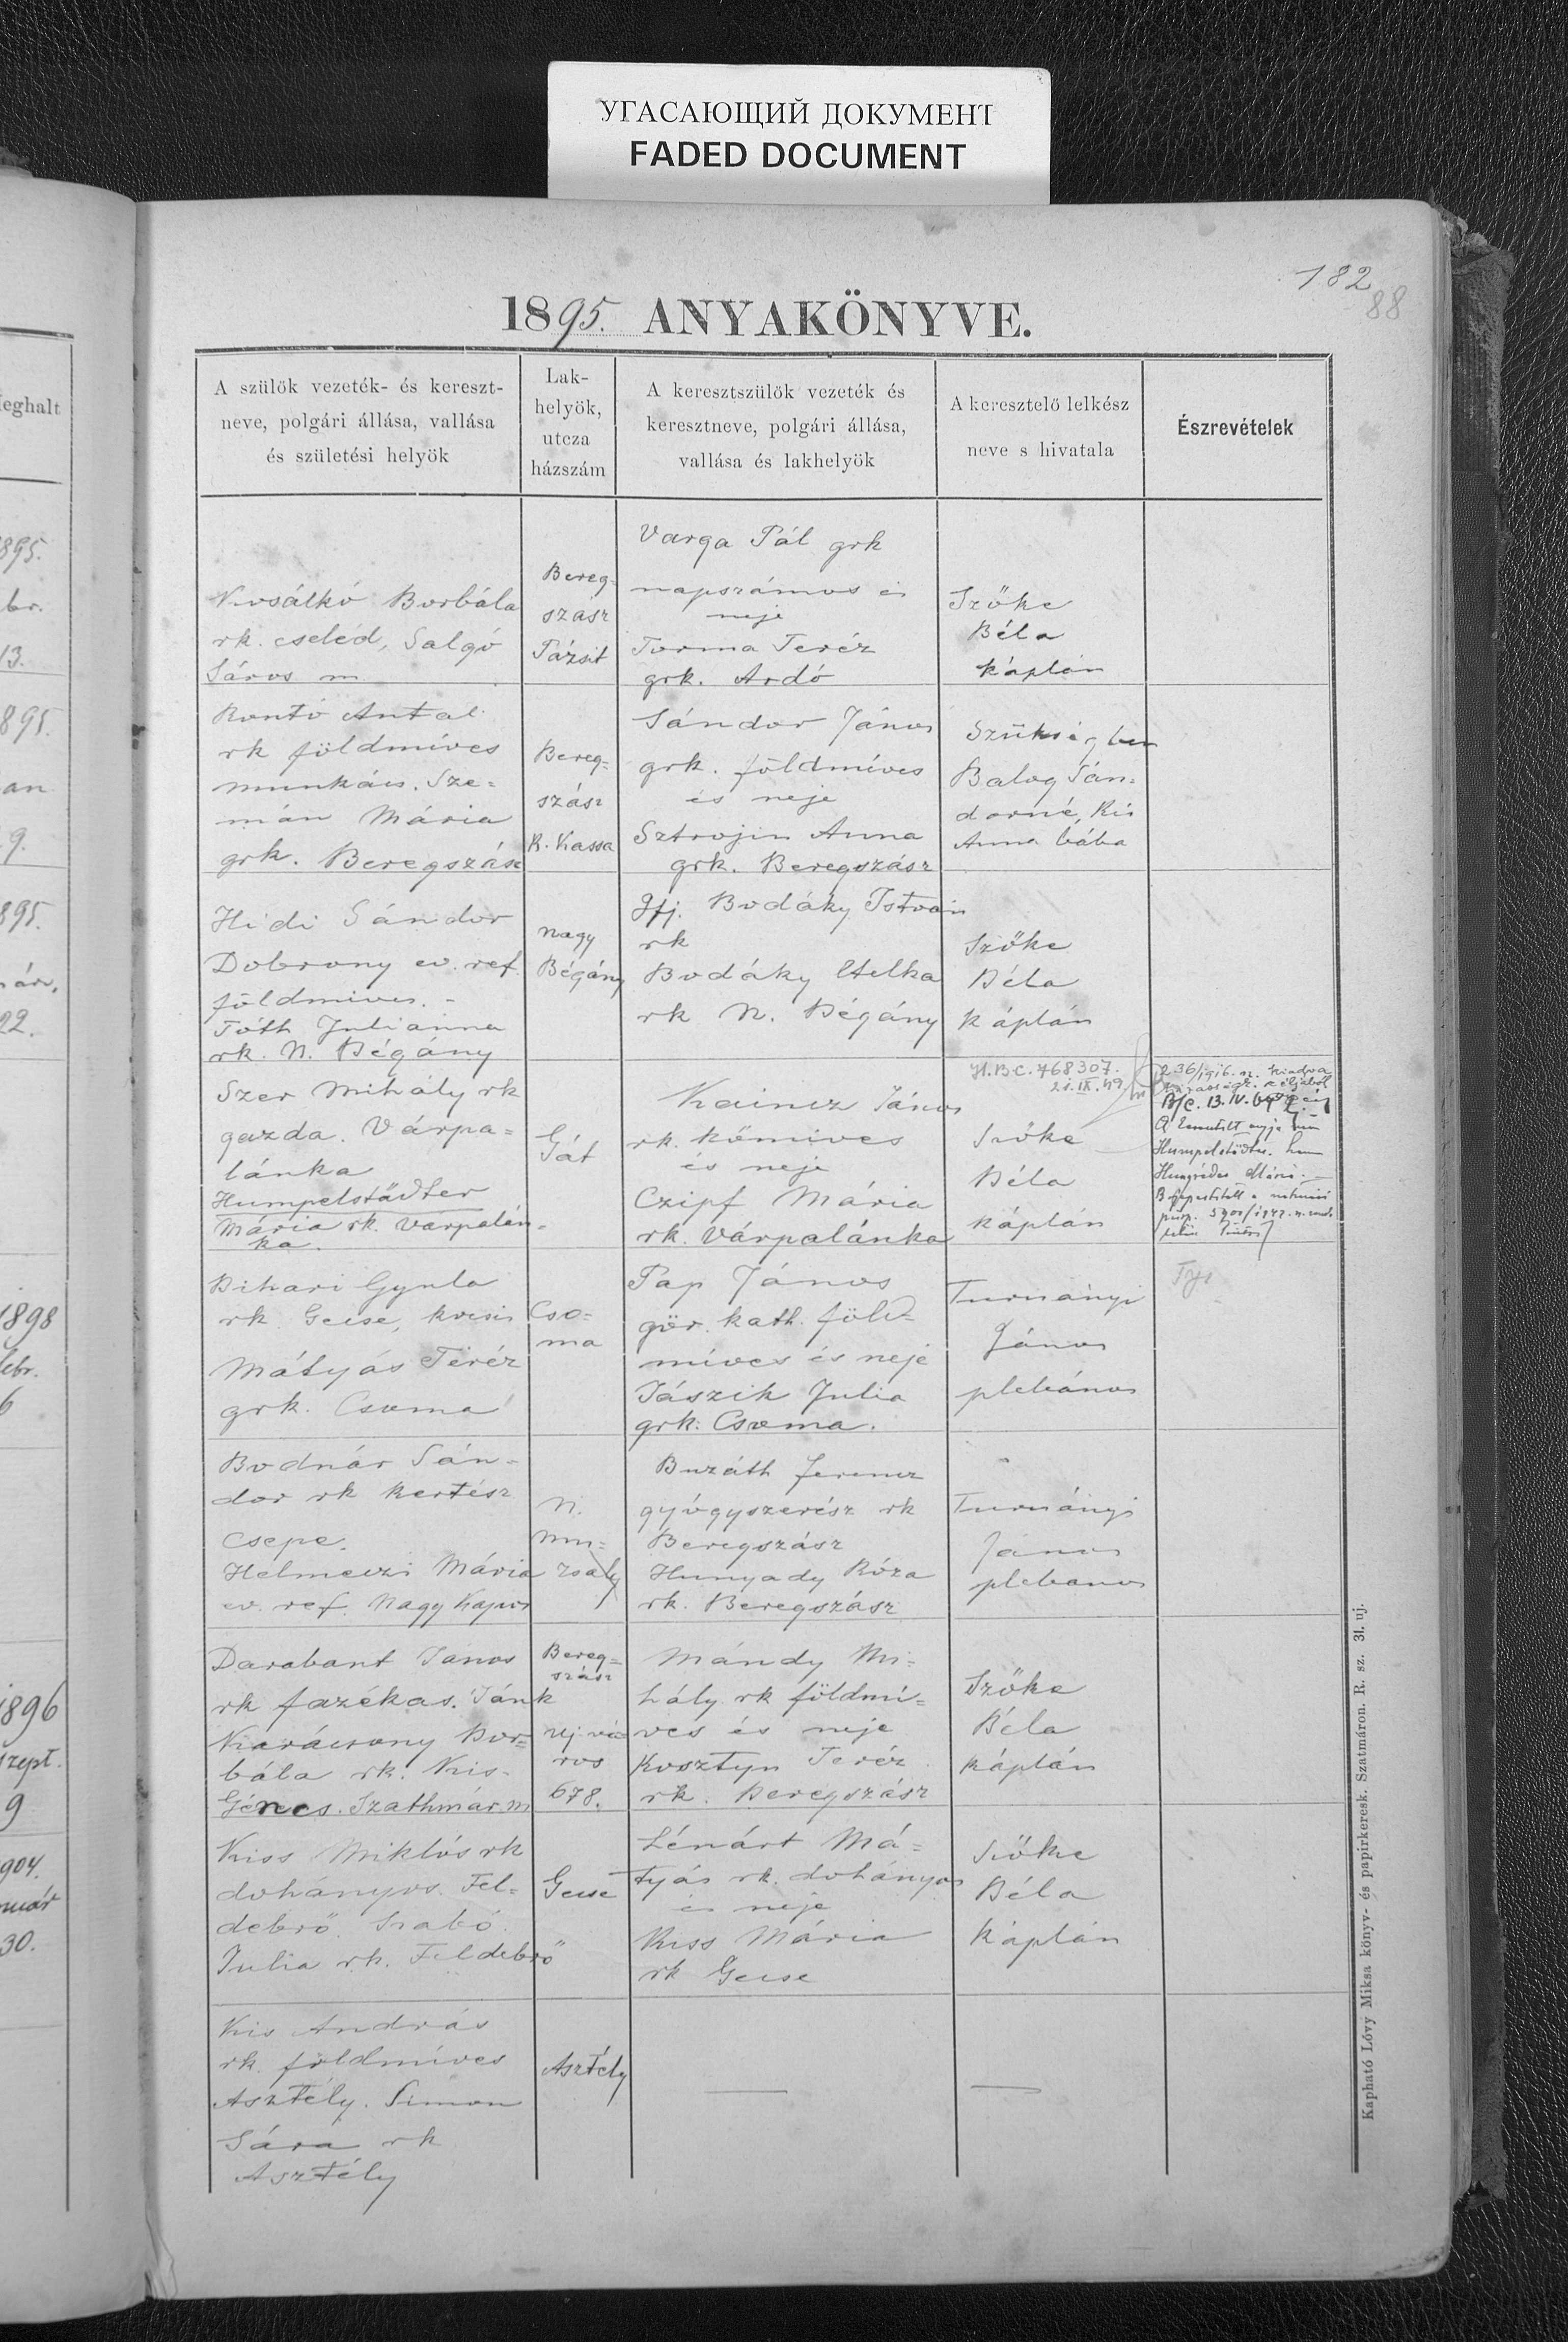 УГАСАЮЩИЙ ДОКУМЕНТ
FADED DOCUMENT
182
88
1895. ANYAKÖNYVE.
A szülök vezeték- és kereszt-
neve, polgári állása, vallása
és születési helyök
Lak-
helyök,
utcza
házszám
A keresztszülök vezeték és
keresztneve, polgári állása,
vallása és lakhelyök
A keresztelö lelkész
neve s hivatala
Észrevételek
eghalt
895.
br.
13.
895.
an
9.
895.
22.
1898
febr.
6
1896
szept.
9
904.
nuár
30.
Borbála
rk. cseléd, Salgó
Sáros m
Bereg-
szász
Pázsit
Varga Pál grk
napszámos és
neje
Torma Teréz
grk. Ardó
Szőke
Béla
káplán
Rontó Antal
rk földmíves
munkács. Sze-
mán Mária
grk. Beregszász
Bereg-
szász
K. Kassa
Sándor János
grk. földmíves
és neje
Sztrojin Anna
grk. Beregszász
Szükségben
Balog Sán-
dorné, Kis
Anna bába
Hidi Sándor
Dobrony ev. ref.
földmives. -
Tóth Julianna
rk. N. Bégány
Nagy
Bégány
Ifj. Bodáky István
rk
Bodáky Etelka
rk N. Bégány
Szőke
Béla
káplán
Szer Mihály rk
gazda. Várpa-
lánka
Humpelstädter
Mária rk. Várpalán-
ka.
Gát
Kaincz János
rk. kőmives
és neje
Czipf Mária
rk. Várpalánka
H.B.C. 768307.
21.IX.49.
Szőke
Béla
káplán
236/1916. sz. kiadva
B/c. 13. IV. 64
Bihari Gyula
rk. Gecse, kocsis
Mátyás Teréz
grk. Csoma
Cso-
ma
Pap János
gör. kath. föld-
míves és neje
Jászik Julia
grk. Csoma.
Turnányi
János
plebános
Bodnár Sán-
dor rk kertész
Csepe.
Helmeczi Mária
ev. ref. Nagy Kapos
N.
Mu-
zsaly
Buzáth Ferencz
gyógyszerész rk
Beregszász
Hunyady Róza
rk. Beregszász
Turnányi
János
plebanos
Darabant János
rk fazékas. Jánk
Karácsony Bor-
bála rk. Kis-
Géncs. Szathmár m
Bereg-
szász
Uj vá-
ros
678.
Mándy Mi-
hály rk földmí-
ves és neje
Kosztyn Teréz
rk. Beregszász
Szőke
Béla
káplán
Kiss Miklós rk
dohányos. Fel-
debrő. Szabó
Julia rk. Feldebrő
Gecse
Lénárt Má-
tyás rk. dohányos
és neje
Kiss Mária
rk Gecse
Szőke
Béla
káplán
Kis András
rk. földmíves
Asztély. Simon
Sára rk
Asztély
Asztély
Kapható Lövy Miksa könyv- és papirkeresk. Szatmáron. R. sz. 31. uj.